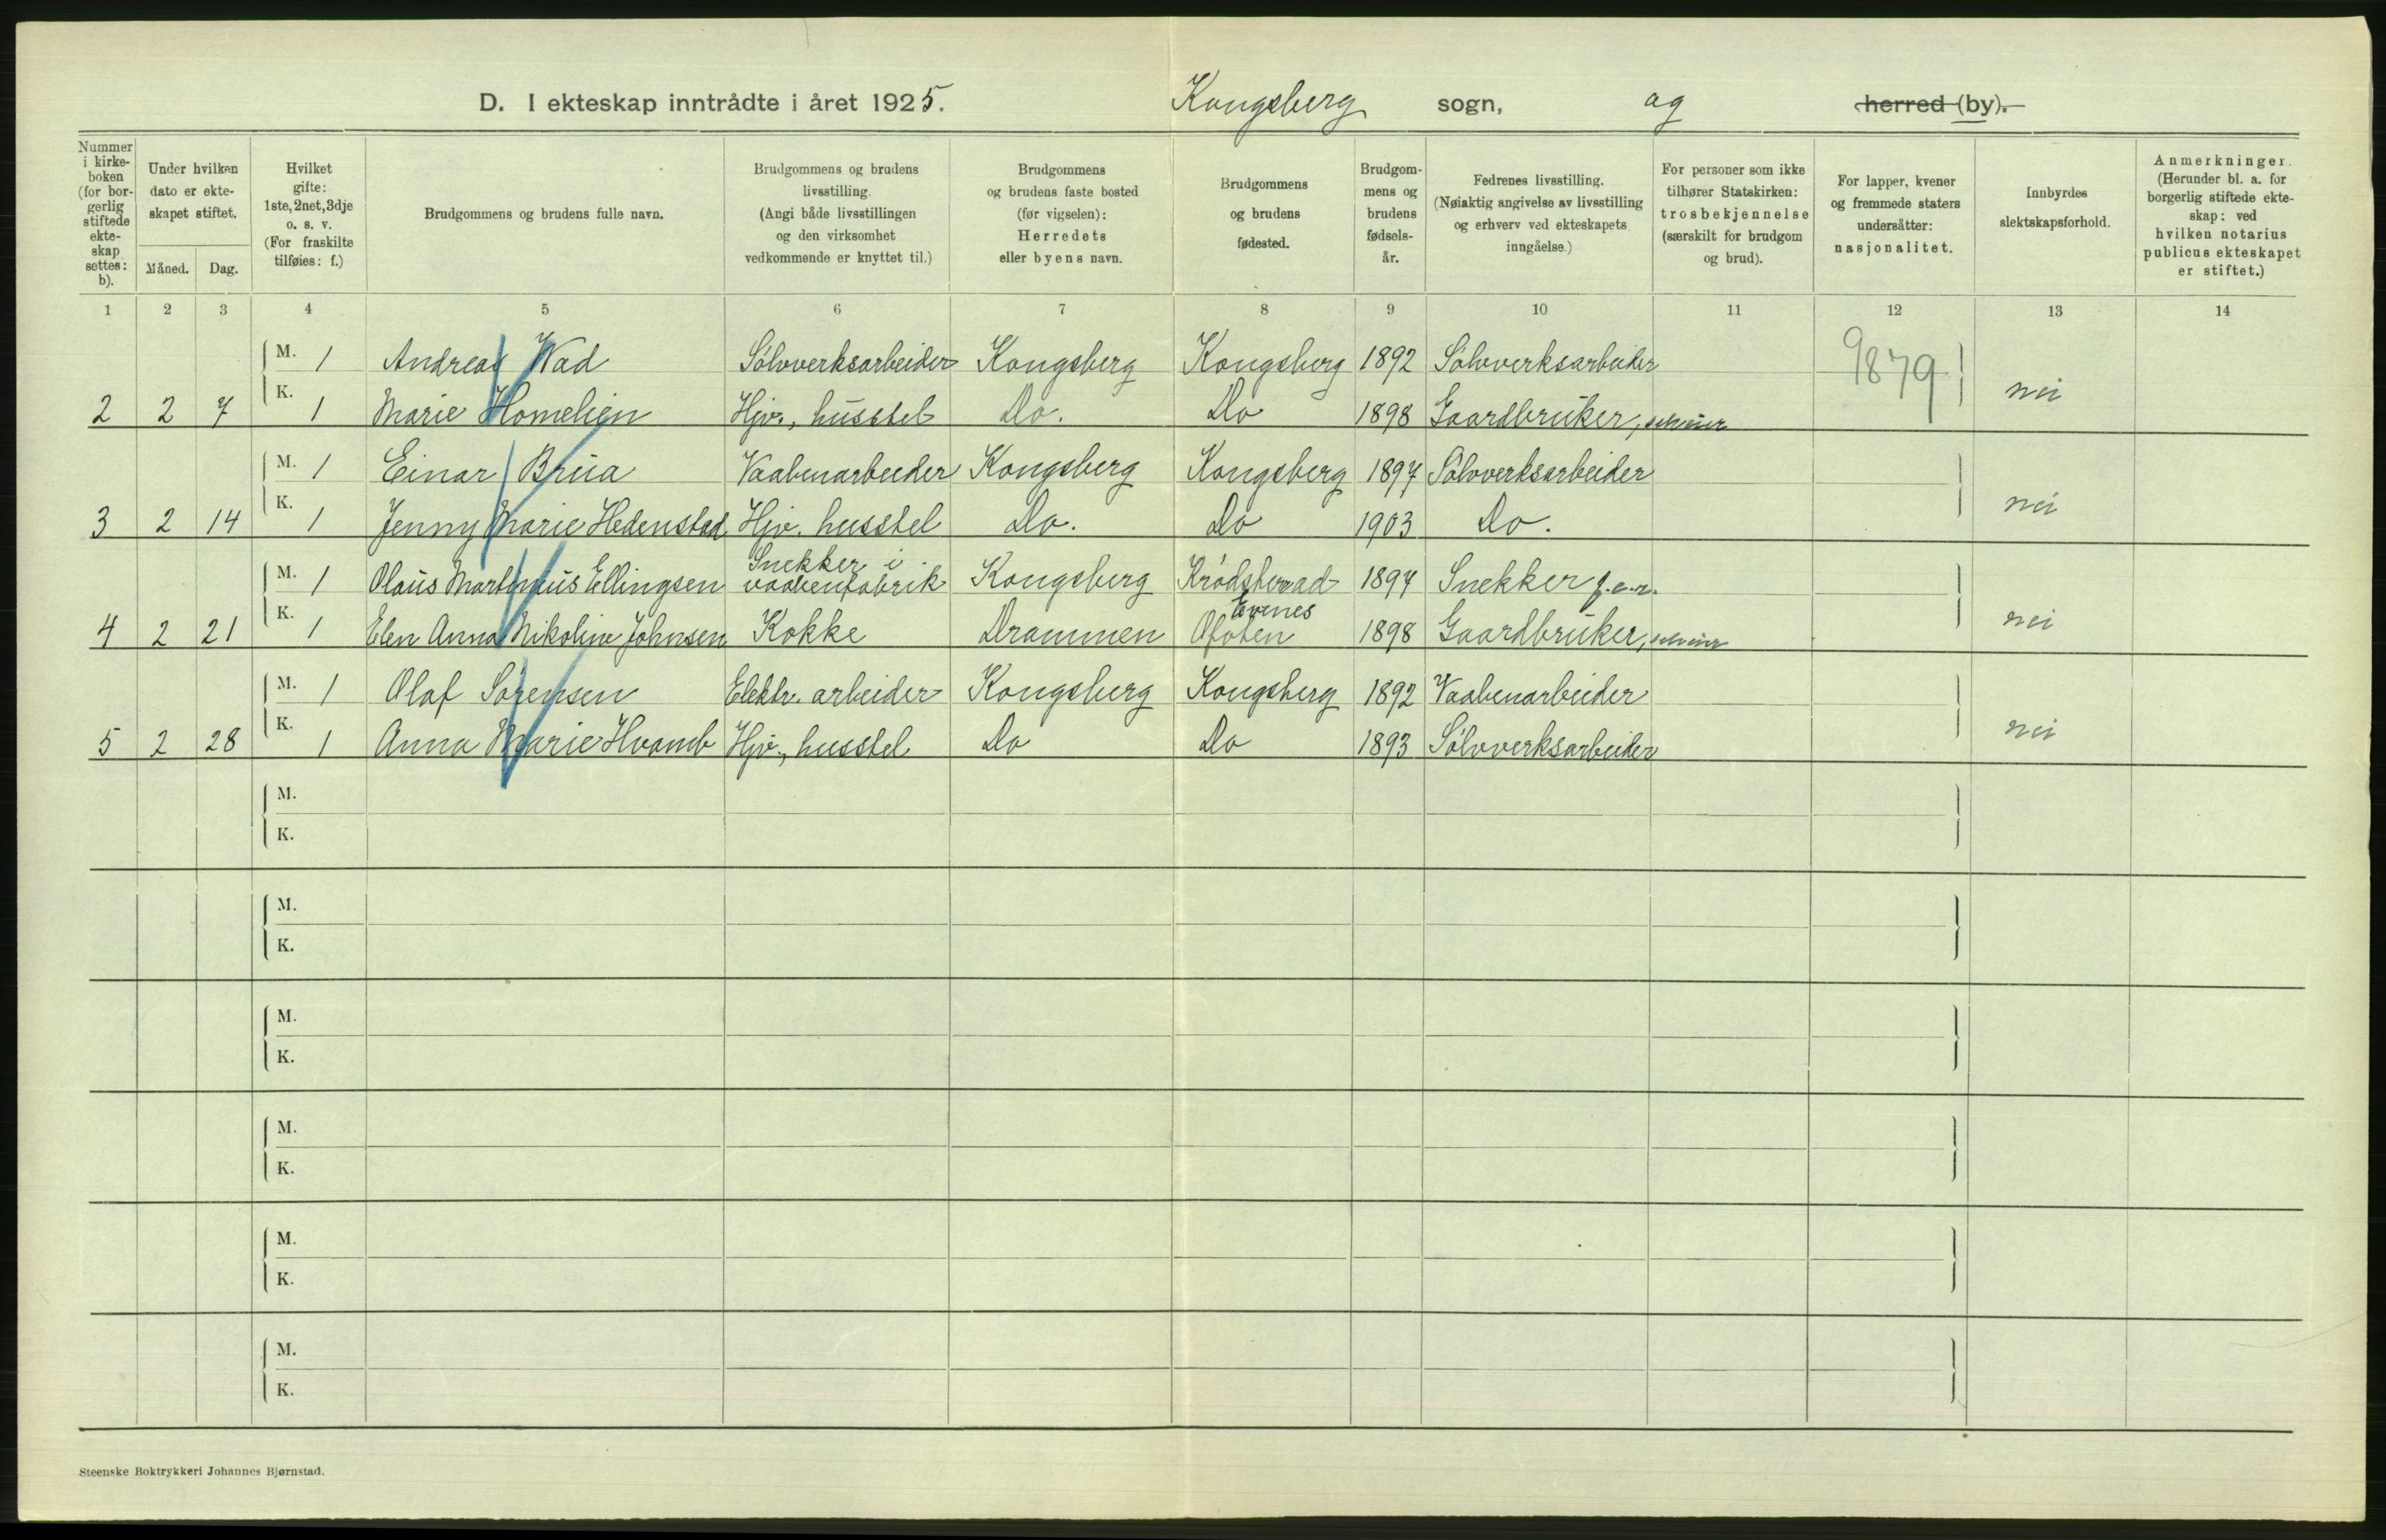 D. I ekteskap inntrådte i året 1925. Kongsberg sogn, og herred (by).
Nummer i kirkeboken (for borgerlig stiftede ekteskap settes: b).
Under hvilken dato er ekteskapet stiftet.
Måned. Dag.
Hvilket gifte: 1ste, 2net, 3dje o. s. v. (For fraskilte tilføies: f.)
Brudgommens og brudens fulle navn.
Brudgommens og brudens livsstilling. (Angi både livsstillingen og den virksomhet vedkommende er knyttet til.)
Brudgommens og brudens faste bosted (før vigselen): Herredets eller byens navn.
Brudgommens og brudens fødested.
Brudgommens og brudens fødselsår.
Fedrenes livsstilling. (Nøiaktig angivelse av livsstilling og erhverv ved ekteskapets inngåelse.)
For personer som ikke tilhører Statskirken: trosbekjennelse (særskilt for brudgom og brud).
For lapper, kvener og fremmede staters undersåtter: nasjonalitet.
Innbyrdes slektskapsforhold.
Anmerkninger. (Herunder bl. a. for borgerlig stiftede ekteskap: ved hvilken notarius publicus ekteskapet er stiftet.)
1 2 3 4 5 6 7 8 9 10 11 12 13 14
M. 1 Andreas Wad Sølvverksarbeider Kongsberg Kongsberg 1892 Sølvverksarbeider 9879
2 2 7 K. 1 Marie Homelien Hjv., husstel Do. Do 1898 Gaardbruker, selveier nei
M. 1 Einar Brua Vaabenarbeider Kongsberg Kongsberg 1897 Sølvverksarbeider
3 2 14 K. 1 Jenny Marie Hedenstad Hjv. husstel Do. Do 1903 Do. nei
M. 1 Olaus Martinius Ellingsen Snekker i vaabenfabrik Kongsberg Krødsherad 1897 Snekker f.e.r.
4 2 21 K. 1 Elen Anna Nikoline Johnsen Kokke Drammen Evenes Ofoten 1898 Gaardbruker, selveier nei
M. 1 Olaf Sørensen Elektr. arbeider Kongsberg Kongsberg 1892 Vaabenarbeider
5 2 28 K. 1 Anna Marie Hvamb Hjv., husstel Do Do 1893 Sølvverksarbeider nei
M.
K.
M.
K.
M.
K.
M.
K.
M.
K.
M.
K.
Steenske Boktrykkeri Johannes Bjørnstad.